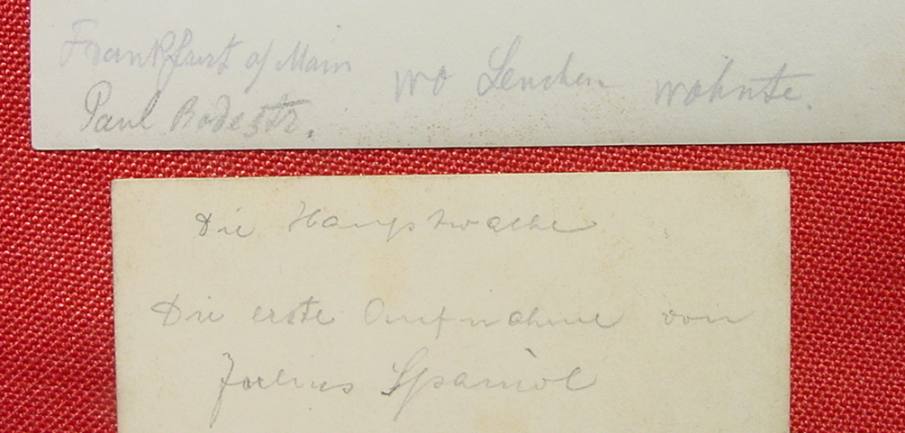 Frankfurt a/Main wo Lenchen wohnte.
Paul Rodestr.
Die Hauptwache
Die erste Aufnahme von
Julius Spaniol